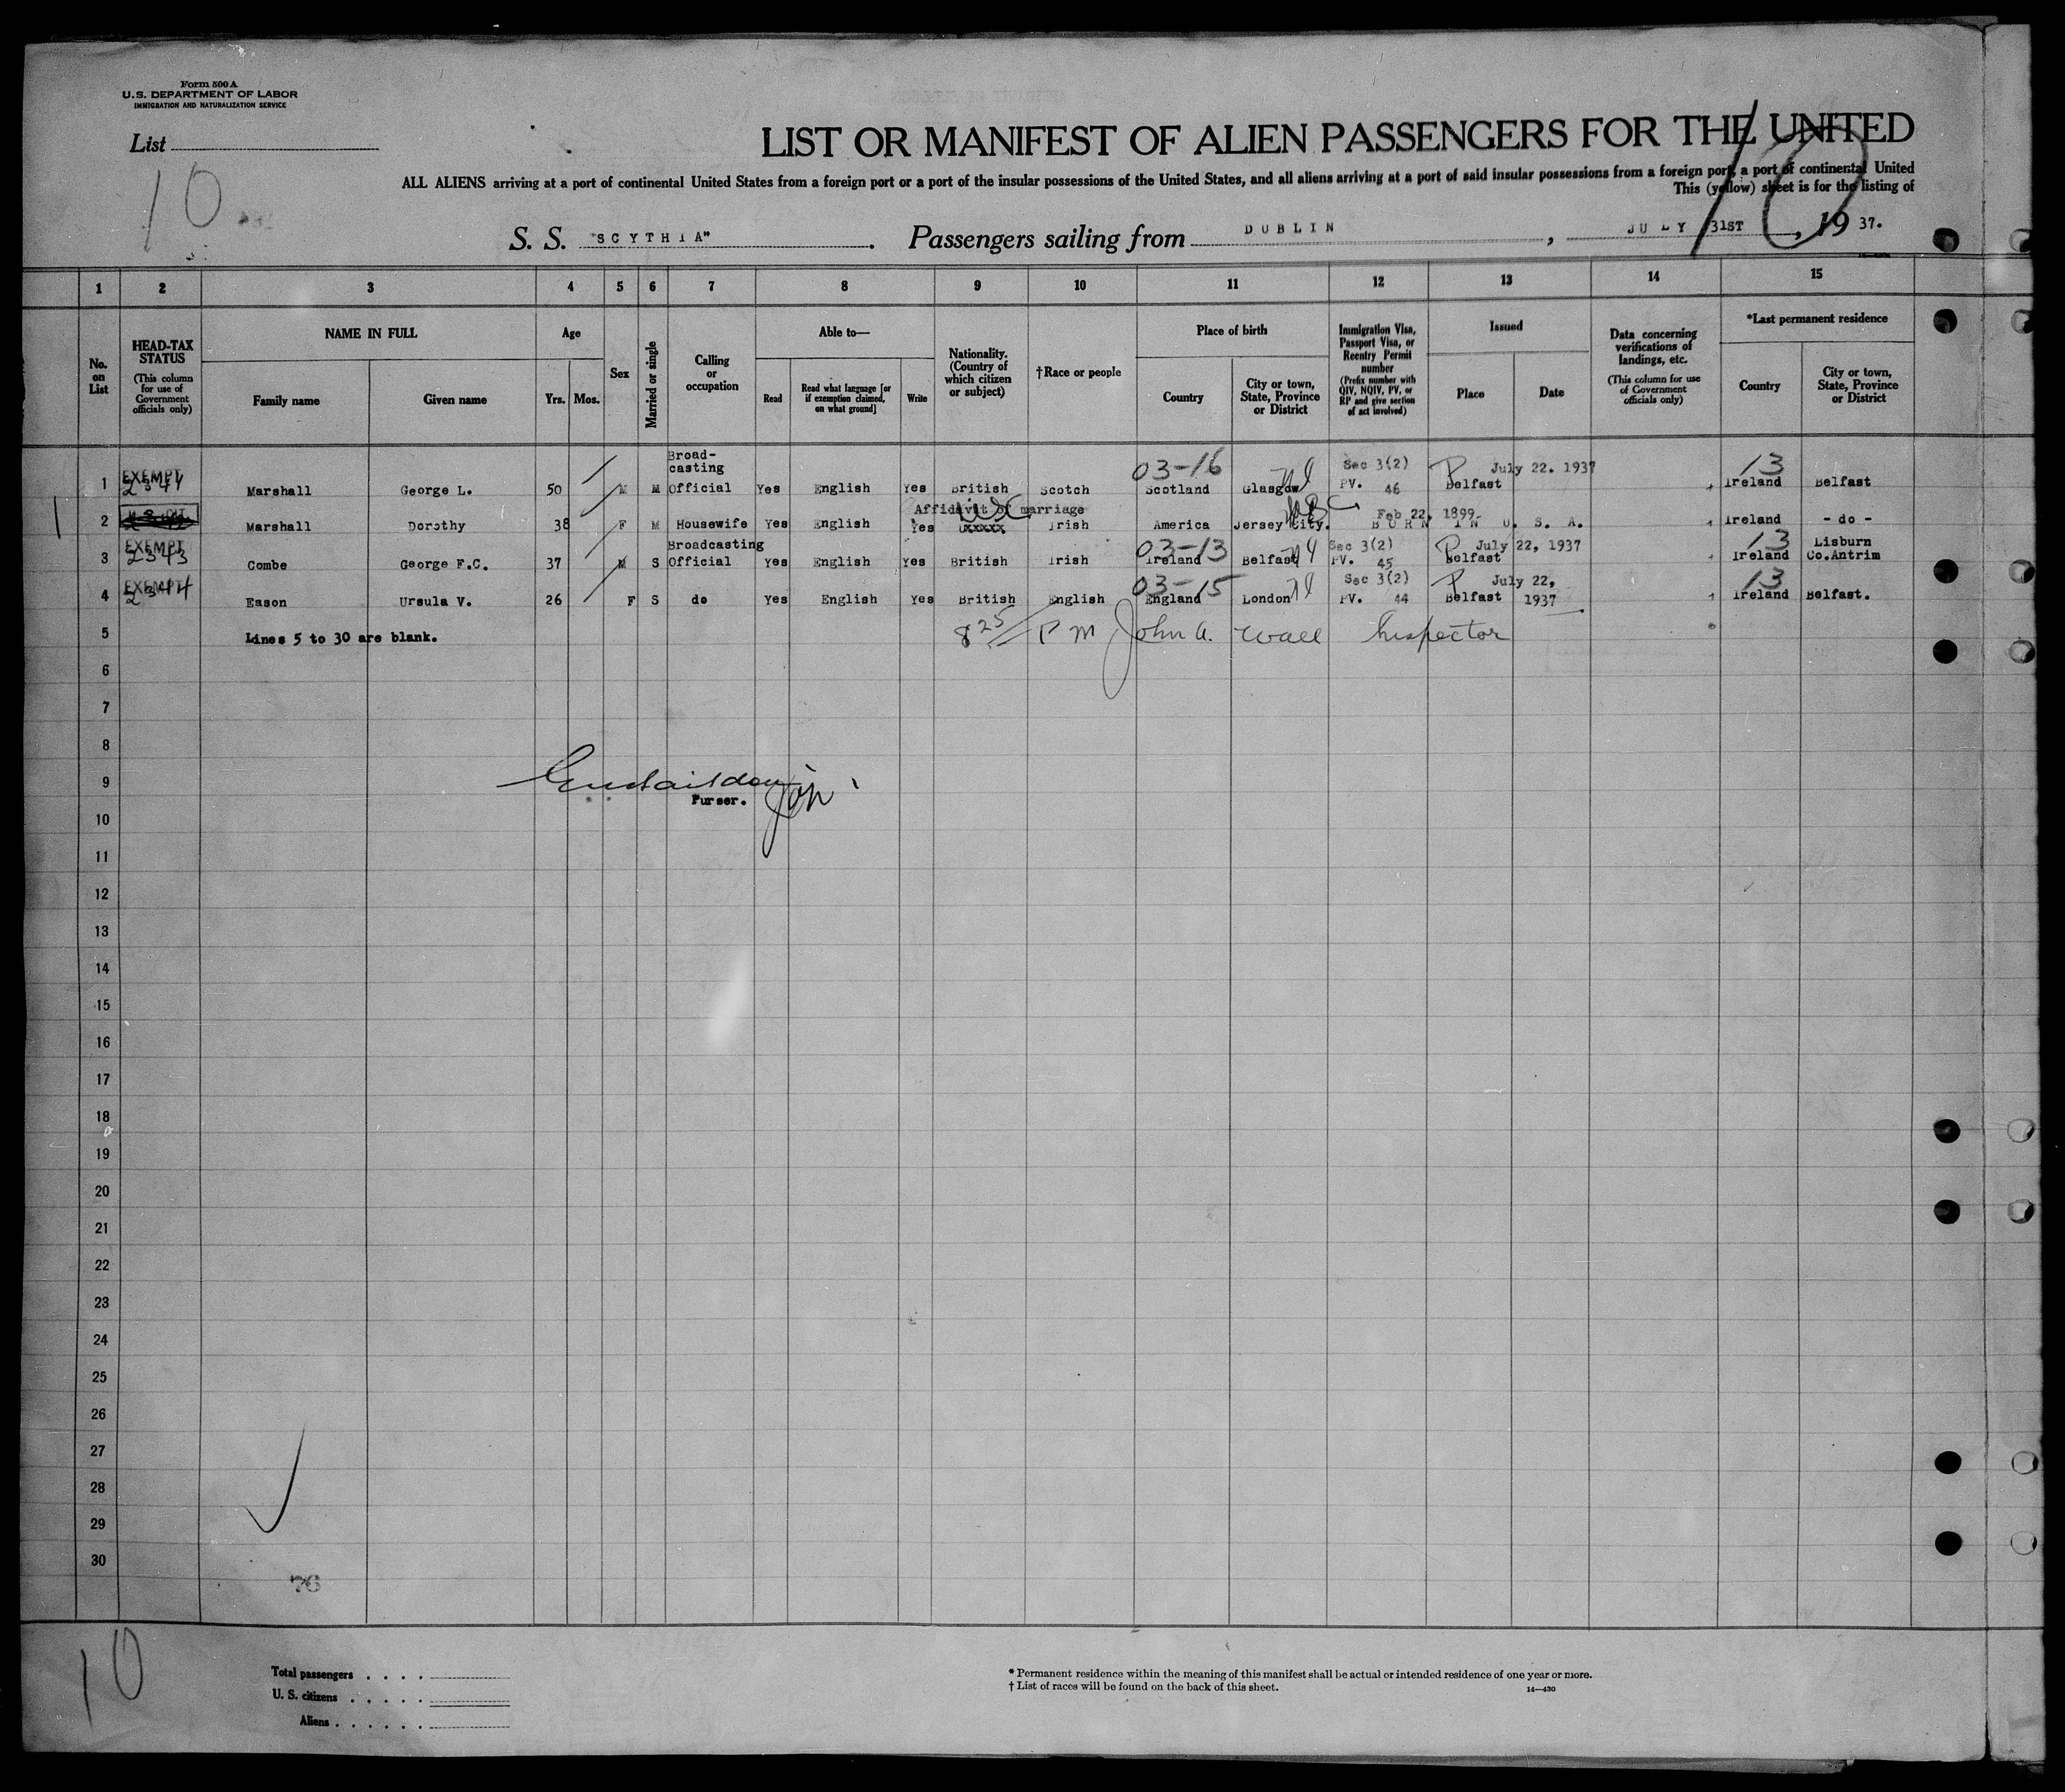 Form 500 A
U.S. DEPARTMENT OF LABOR
IMMIGRATION AND NATURALIZATION SERVICE
List
10
10
LIST OR MANIFEST OF ALIEN PASSENGERS FOR THE UNITED
ALL ALIENS arriving at a port of continental United States from a foreign port or a port of the insular possessions of the United States, and all aliens arriving at a port of said insular possessions from a foreign port, a port of continental United
This (yellow) sheet is for the listing of
S. S. "SCYTHIA". Passengers sailing from DUBLIN, JULY 31ST, 1937.
1 2 3 4 5 6 7 8 9 10 11 12 13 14 15
No. on List
HEAD-TAX STATUS
(This column for use of Government officials only)
NAME IN FULL
Family name
Given name
Age
Yrs. Mos.
Sex
Married or single
Calling or occupation
Able to—
Read
Read what language [or if exemption claimed, on what ground]
Write
Nationality. (Country of which citizen or subject)
†Race or people
Place of birth
Country
City or town, State, Province or District
Immigration Visa, Passport Visa, or Reentry Permit number
(Prefix number with QIV, NQIV, PV, or RP and give section of act involved)
Issued
Place
Date
Data concerning verifications of landings, etc.
(This column for use of Government officials only)
*Last permanent residence
Country
City or town, State, Province or District
1 EXEMPT 2341 Marshall George L. 50 M M Broad-casting Official Yes English Yes British Scotch 03-16 Scotland Glasgow Sec 3(2) PV. 46 P Belfast July 22. 1937 13 Ireland Belfast
2 Marshall Dorothy 38 F M Housewife Yes English Yes Affidavit of marriage USC xxxxx Irish America Jersey City. Feb 22, 1899. BORN IN U. S. A. Ireland - do -
3 EXEMPT 2343 Combe George F.C. 37 M S Broadcasting Official Yes English Yes British Irish 03-13 Ireland Belfast Sec 3(2) PV. 45 P Belfast July 22, 1937 13 Ireland Lisburn Co.Antrim
4 EXEMPT 2344 Eason Ursula V. 26 F S do Yes English Yes British English 03-15 England London Sec 3(2) PV. 44 P Belfast July 22, 1937 13 Ireland Belfast.
5 Lines 5 to 30 are blank. 8 25 P M John A. Wall Inspector
6
7
8
9
Purser.
10
11
12
13
14
15
16
17
18
19
20
21
22
23
24
25
26
27
28
29
30
76
10
Total passengers
U. S. citizens
Aliens
* Permanent residence within the meaning of this manifest shall be actual or intended residence of one year or more.
† List of races will be found on the back of this sheet.
14—430